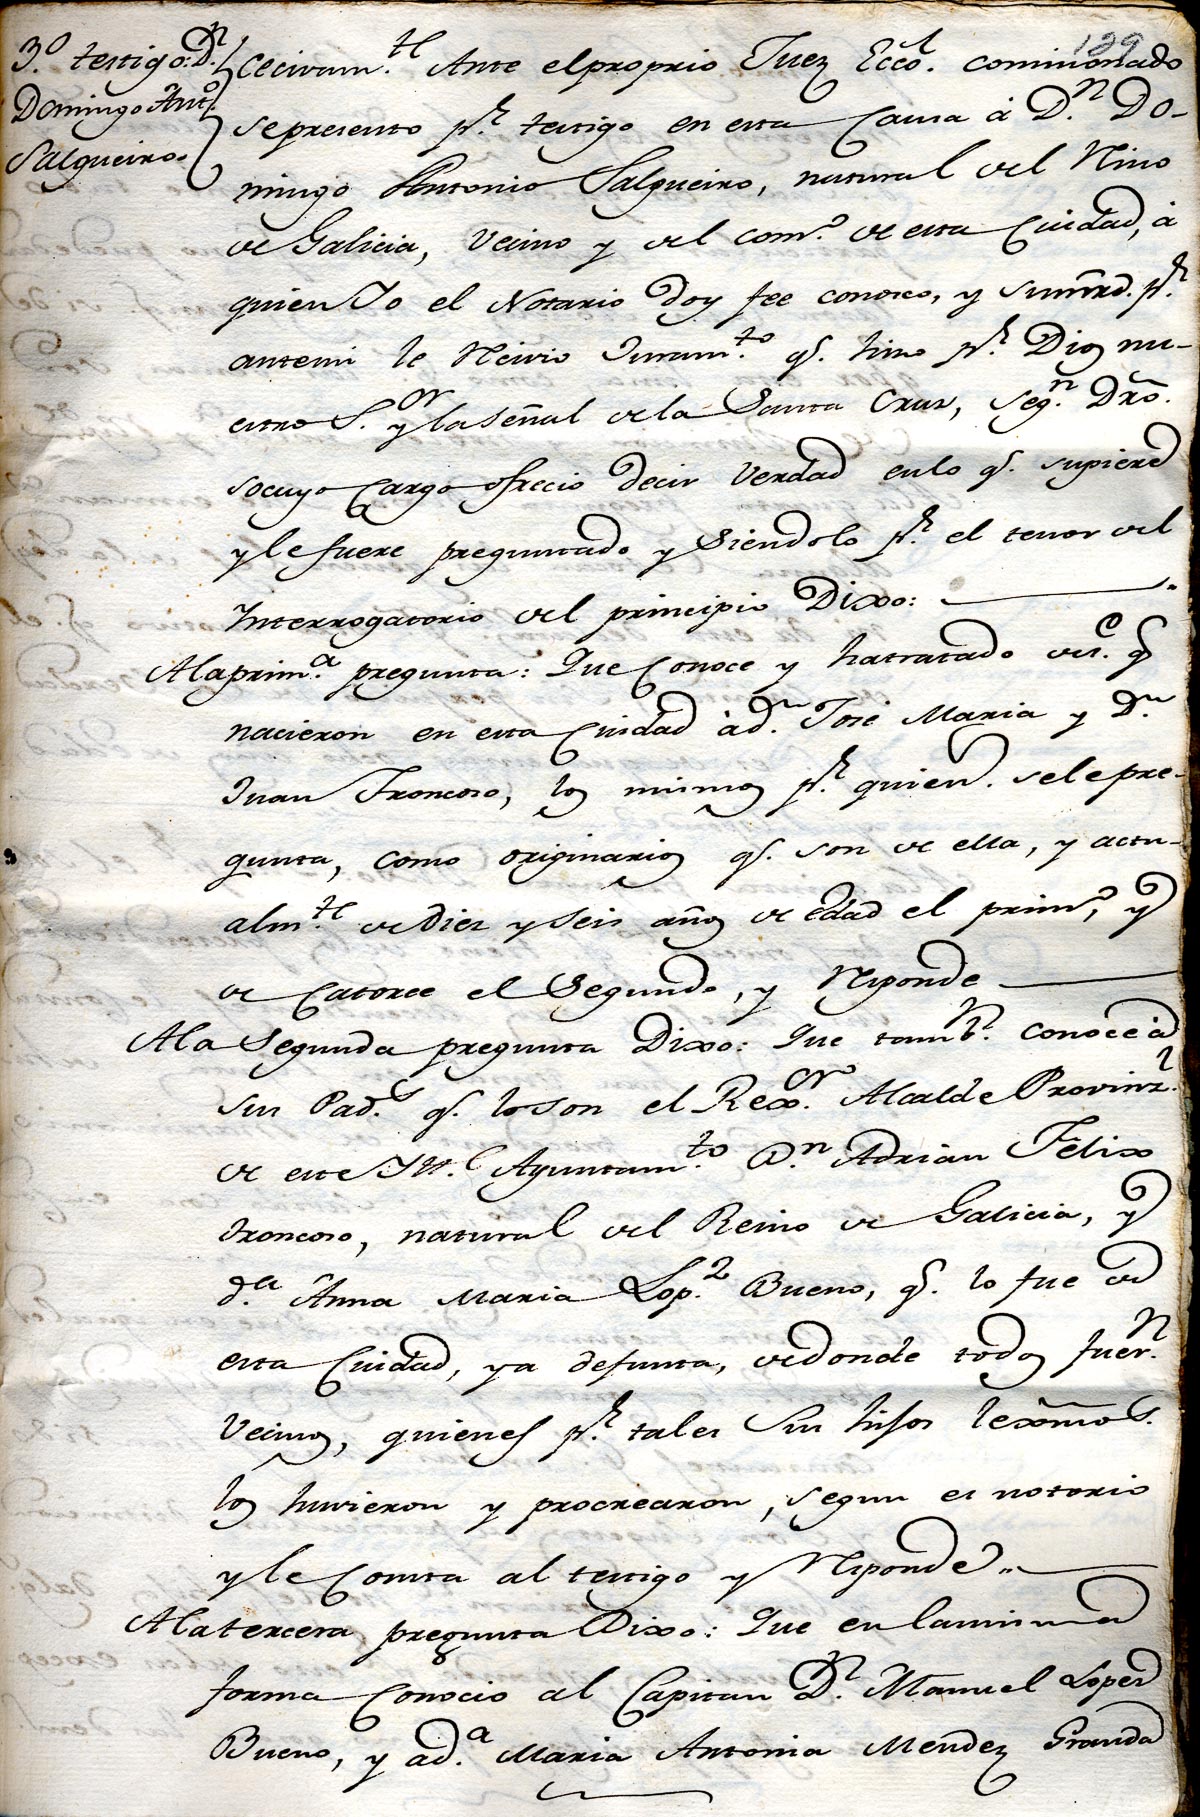 129
3.º testigo: Dn.
Domingo Antº.
Salgueiro.
Cecivam.te Ante el proprio Juez Ecco.l comicionado
se presento pr. testigo en esta Causa á Dn. Do-
mingo Antonio Salgueiro, natural del Rino
de Galicia, Vecino y del comº. de esta Ciudad, á
quien Yo el Notario doy fee conosco, y Sumrd. pr.
antemi le Recivio Juram.to q.e hizo pr. Dios nu-
estro S.or y la señal de la Santa Cruz, Seg.n Dro.
socuyo Cargo ofrecio decir Verdad en lo q.e supiere
y le fuere preguntado y Siendolo pr. el tenor del
Interrogatorio del principio Dixo:
A la prim.a pregunta: Que Conoce y ha tratado des.e q.e
nacieron en esta Ciudad á dn. José Maria y Dn.
Juan Troncoso, los mismos pr. quien.s se le pre-
gunta, como originarios q.e son de ella, y actu-
alm.te de Diez y Seis años de edad el primº, y
de Catorce el Segundo, y Responde
A la Segunda pregunta Dixo: Que tamb.n conoce á
sus Pad.s q.e lo son el Rex.or Alcalde Provinz.l
de este Ill.e Ayuntam.to Dn. Adrian Felix
troncoso, natural del Reino de Galicia, y
d.a Anna Maria Lop.z Bueno, q.e lo fue de
esta Ciudad, ya defunta, de donde todos fuer.n
Vecinos, quienes pr. tales Sus hijos lexmos.
los huvieron y procrearon, segun es notorio
y le Consta al testigo y Responde
A la tercera pregunta Dixo: Que en la misma
forma Conocio al Capitan Dn. Manuel Lopez
Bueno, y a d.a Maria Antonia Mendez Granda